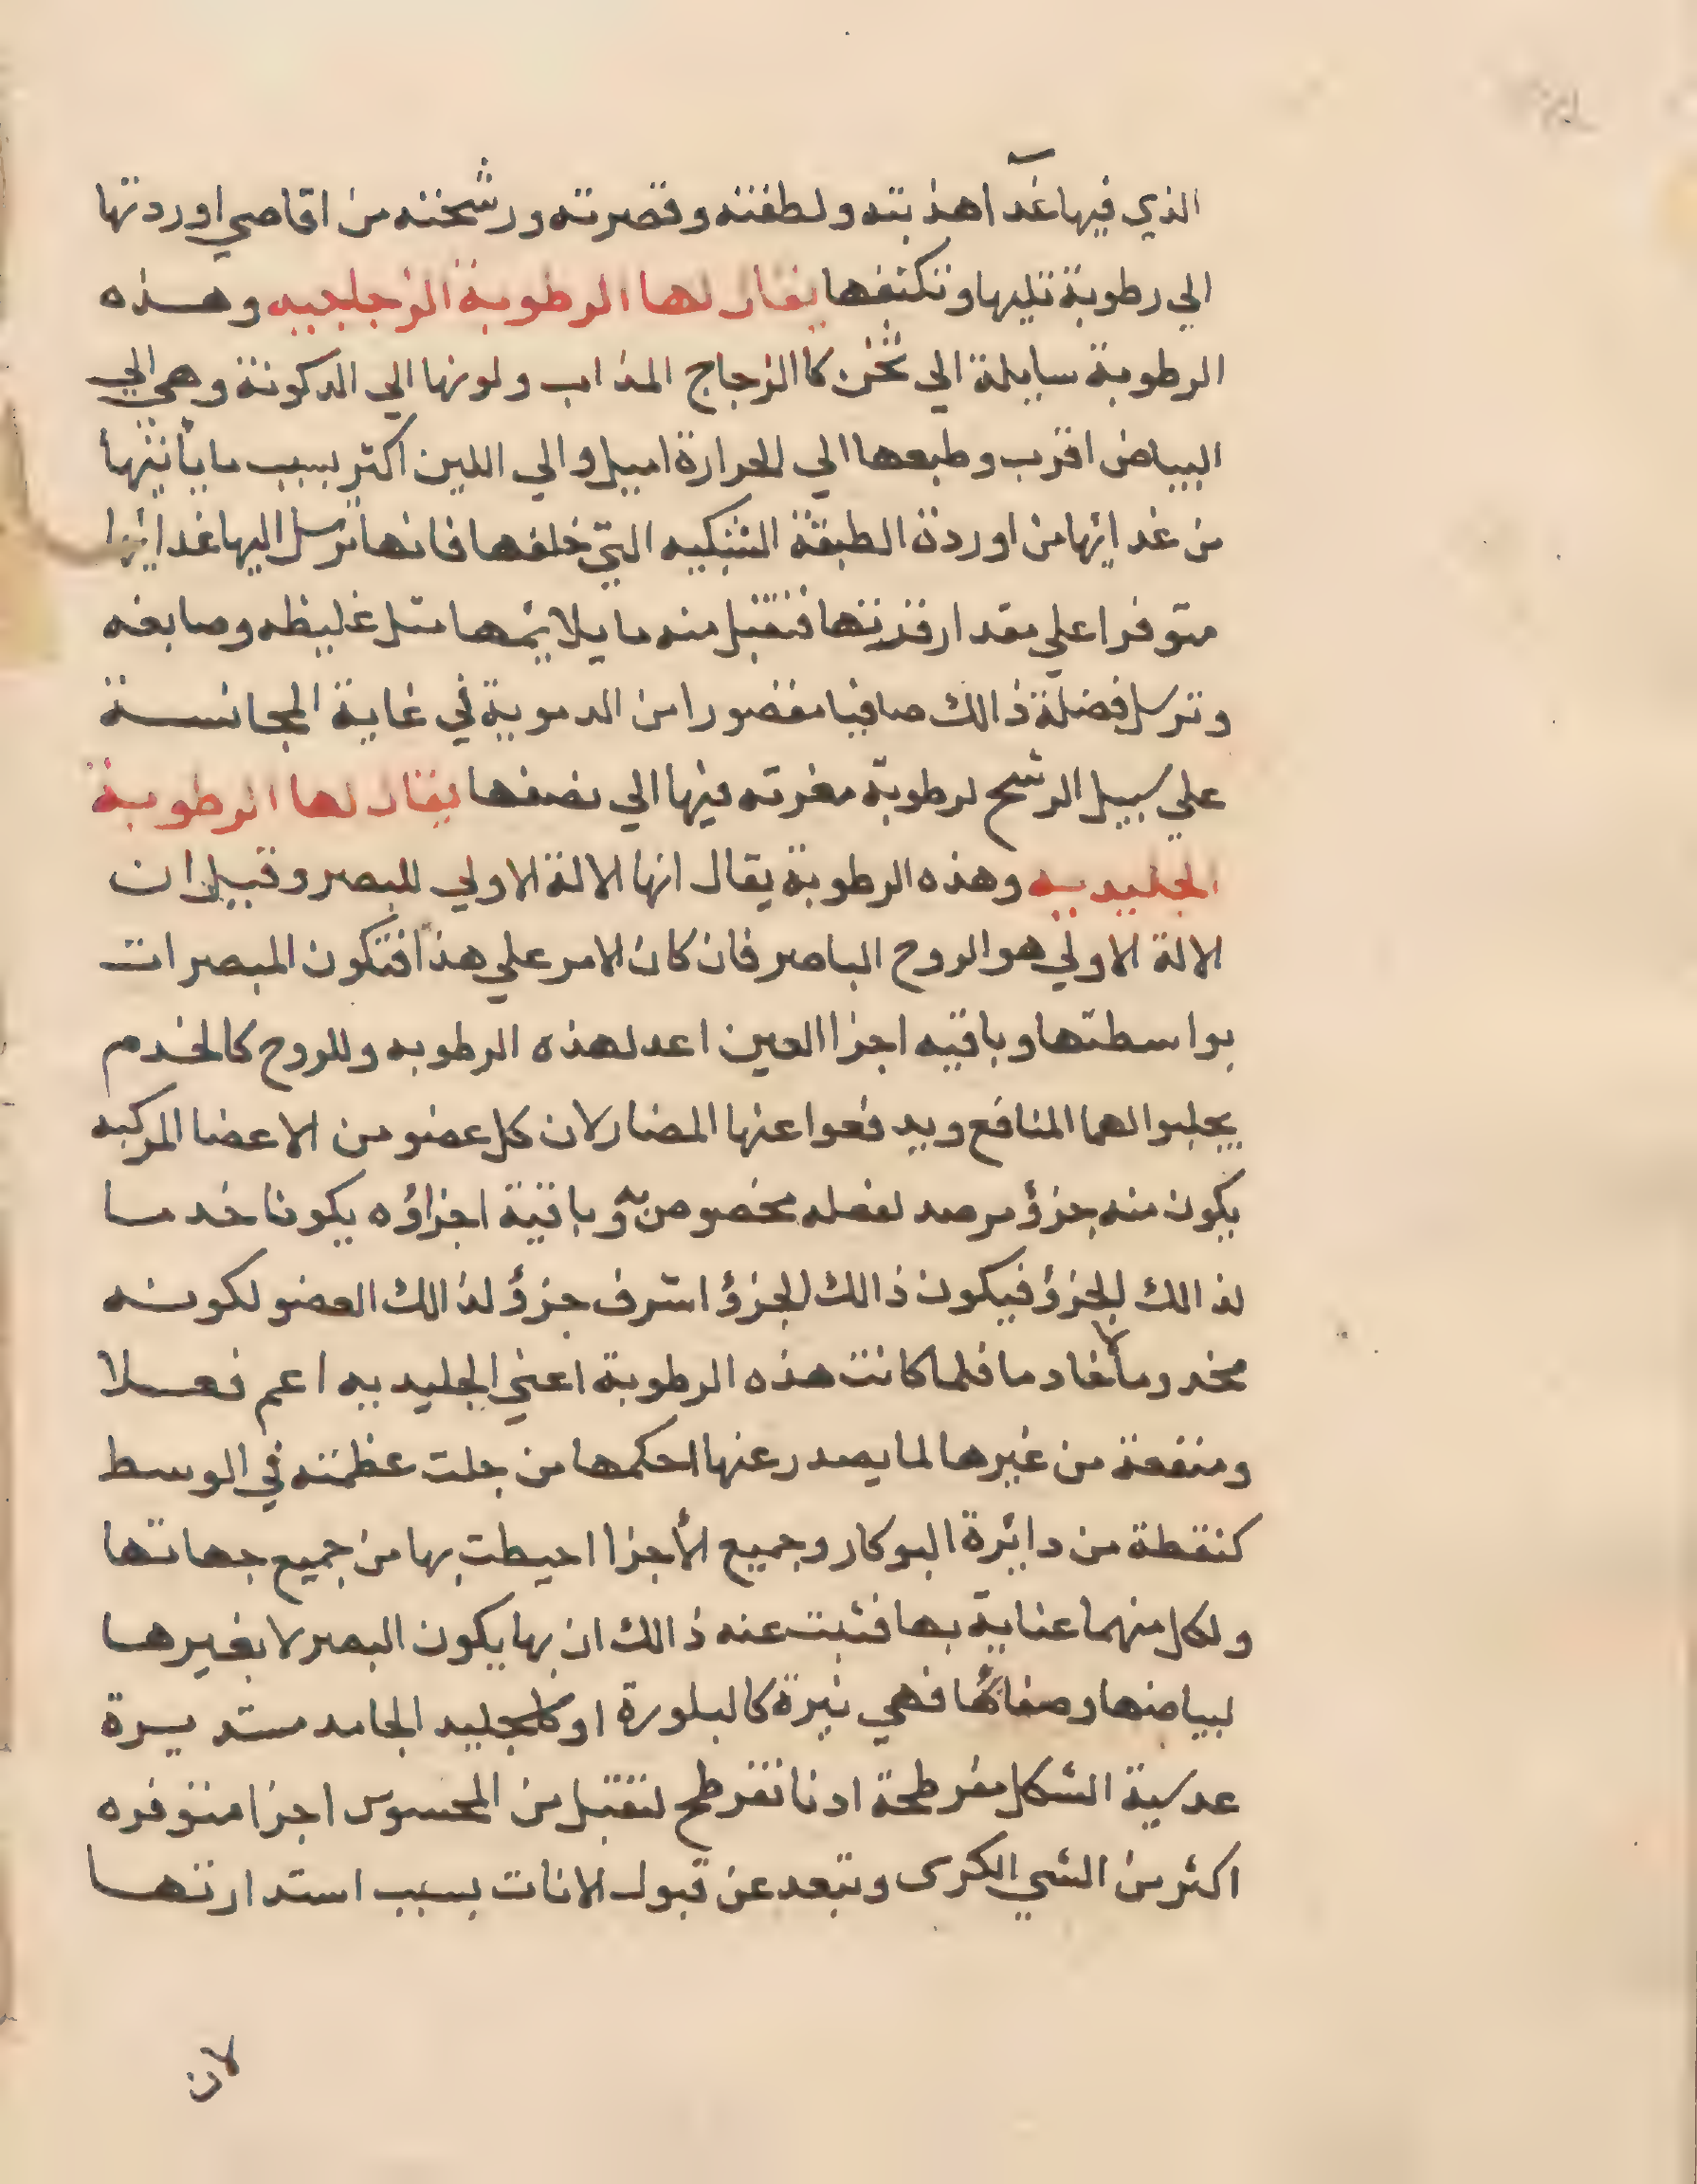 الذي فيها غدآ اهذبته ولطفته وقصرته ورشحته من اقاصي اوردتها
الي رطوبة تليها وتكثفها يقال لها الرطوبة الزجاجيه وهذه
الرطوبة سايلة الي ثخن كاالزجاج المذاب ولونها الي الدكونة وهي الي
البياض اقرب وطبعها الي الحرارة اميل والي اللين اكتر بسبب ما يأتيها
من غدايها من اوردة الطبقة الشبكيه التي خلفها فانها ترسل اليها غدايها
متوفرا علي مقدار قدرتها فتقبل منه ما يلايمها متل غليظه وصابغه
وترسل فضلة ذالك صافيا مقصورا من الدموية في غاية المجانسة
علي سبيل الرشح لرطوبة مغرته فيها الي نصفها يقال لها الرطوبة
الجليديه وهذه الرطوبة يقال انها الالة الاولي للبصر وقيل ان
الالة الاولي هو الروح الباصر فان كان الامر علي هذا فتكون المبصرات
بواسطتها وباقيه اجزا العين اعد لهذه الرطوبه وللروح كالخدم
يجلبوا لهما المنافع ويدفعوا عنها المضار لان كل عضو من الاعضا المركبه
يكون منه جزؤ مرصد لفعله مخصوص به وباقية اجزاؤه يكونا خدما
لذالك الجزؤ فيكون ذالك الجزؤ اشرف جزؤ لذالك العضو لكونه
مخدوما لا خادما فلما كانت هذه الرطوبة اعني الجليديه اعم فعلا
ومنفعة من غيرها لما يصدر عنها احكمها من جلت عظمته في الوسط
كنقطة من دايرة البوكار وجميع الأجزا احيطت بها من جميع جهاتها
ولكل منهما عناية بها فثبت عنه ذالك ان بها يكون البصر لا بغيرها
لبياضها وصفائها فهي نيرة كالبلورة او كالجليد الجامد مستديرة
عدسية الشكل مفرطحة ادنا تفرطح لتقبل من المحسوس اجزا متوفره
اكثر من الشي الكرى وتبعد عن قبول الافات بسبب استدارتها
لان